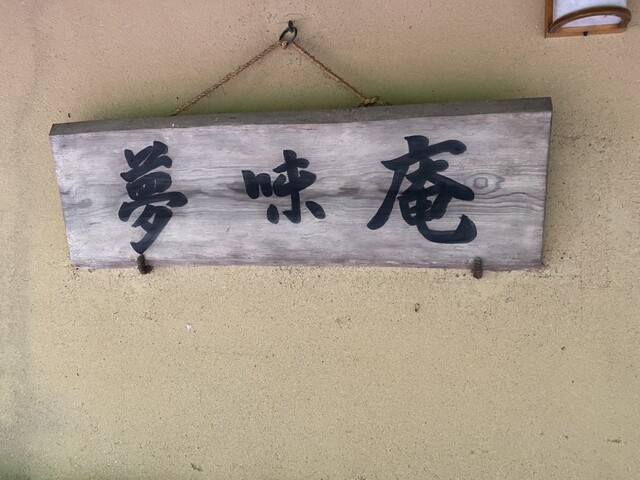 夢味庵